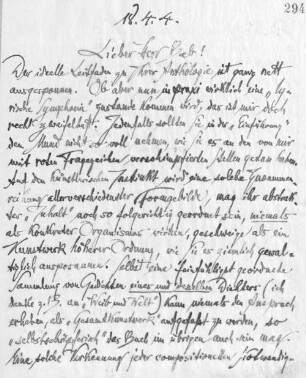 294
18.4.4.
Lieber Herr Bab!
Der ideelle Leitfaden zu Ihrer Anthologie ist ganz nett
ausgesponnen. Ob aber nun in praxi wirklich eine „ly-
rische Symphonie" zustande kommen wird, das ist mir doch
recht zweifelhaft. Jedenfalls sollten Sie in der „Einführung"
den Mund nicht so voll nehmen, wie Sie es an den von mir
mit roten Fragezeichen Stellen gethan haben.
Auf den künstlerischen Instinkt wird eine solche Zusammen-
reihung allerverschiedenster Formgebilde, mag ihr abstrak-
ter „Inhalt" noch so folgerichtig geordnet sein, niemals
als Organismus wirken, geschweige als ein
Kunstwerk höherer Ordnung, wie Sie es ziemlich gewalt-
thätig ausposaunen. Selbst eine feinfühligst geordnete
Sammlung von Gedichten eines und desselben Dichters (ich
denke z. B. an „Weib und Welt") kann niemals den Anspruch
erheben, als „Gesamtkunstwerk" aufgefaßt zu werden, so
„selbstschöpferisch" das Buch im übrigen auch sein mag.
Eine solche Verkennung jeder compositionellen Notwendig-